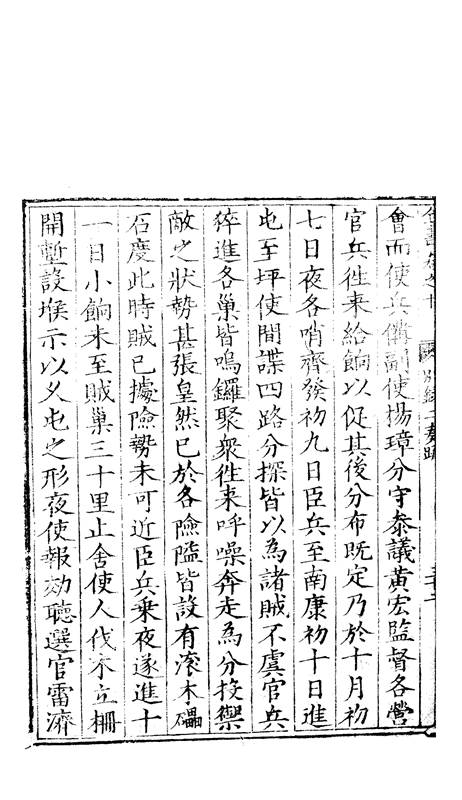 會而使兵備副使楊璋分守參議黃宏監督各營
官兵徃来給餉以促其後分布既定乃於十月初
七日夜各哨齊發初九日臣兵至南康初十日進
屯至坪使間諜四路分探皆以為諸賊不虞官兵
猝進各巢皆鳴鑼聚衆徃来呼噪奔走為分投禦
敵之狀勢甚張皇然已於各險隘皆設有滾木礧
石度此時賊已據險勢未可近臣兵乗夜遂進十
一日小餉未至賊巢三十里止舍使人伐木立柵
開塹設堠示以久屯之形夜使報効聽選官雷濟